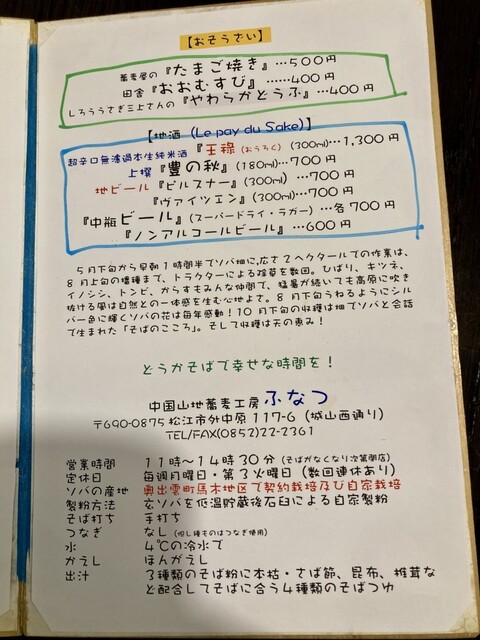 【おそうざい】
蕎麦屋の『たまご焼き』…500円
田舎『おおむすび』……400円
しろううさぎ三上さんの『やわらかとうふ』…400円
【地酒 (Le pay du Sake)】
超辛口無濾過本生純米酒 『王祿(おうろく) (300ml)…1,300円
上撰『豊の秋』(180ml)…700円
地ビール『ピルスナー』(300ml) …700円
『ヴァイツェン』(300ml)…700円
『中瓶ビール』(スーパードライ・ラガー) …各700円
『ノンアルコールビール』…600円
5月下旬から早朝1時間半でソバ畑に,広さ2ヘクタールでの作業は、
8月上旬の播種まで、トラクターによる除草を数回。ひばり、キツネ、
イノシシ、トンビ、からすもみんな仲間で、猛暑が続いても高原に吹き
抜ける風は自然との一体感を生む心地よさ。8月下旬うねるようにシル
バー色に輝くソバの花は毎年感動!10月下旬の収穫は畑でソバと会話
で生まれた「そばのこころ」。そして収穫は天の恵み!
どうかそばで幸せな時間を!
中国山地蕎麦工房 ふなつ
〒690-0875 松江市外中原117-6 (城山西通り)
TEL/FAX(0852)22-2361
営業時間 11時~14時30分(そばがなくなり次第閉店)
定休日 毎週月曜日・第3火曜日(数回連休あり)
ソバの産地 奥出雲町馬木地区で契約栽培及び自家栽培
製粉方法 玄ソバを低温貯蔵後石臼による自家製粉
そば打ち 手打ち
つなぎ なし(但し種ものはつなぎ使用)
水 4℃の冷水で
かえし ほんがえし
出汁 3種類のそば粉に本枯・さば節、昆布、椎茸な
と配合してそばに合う4種類のそばつゆ